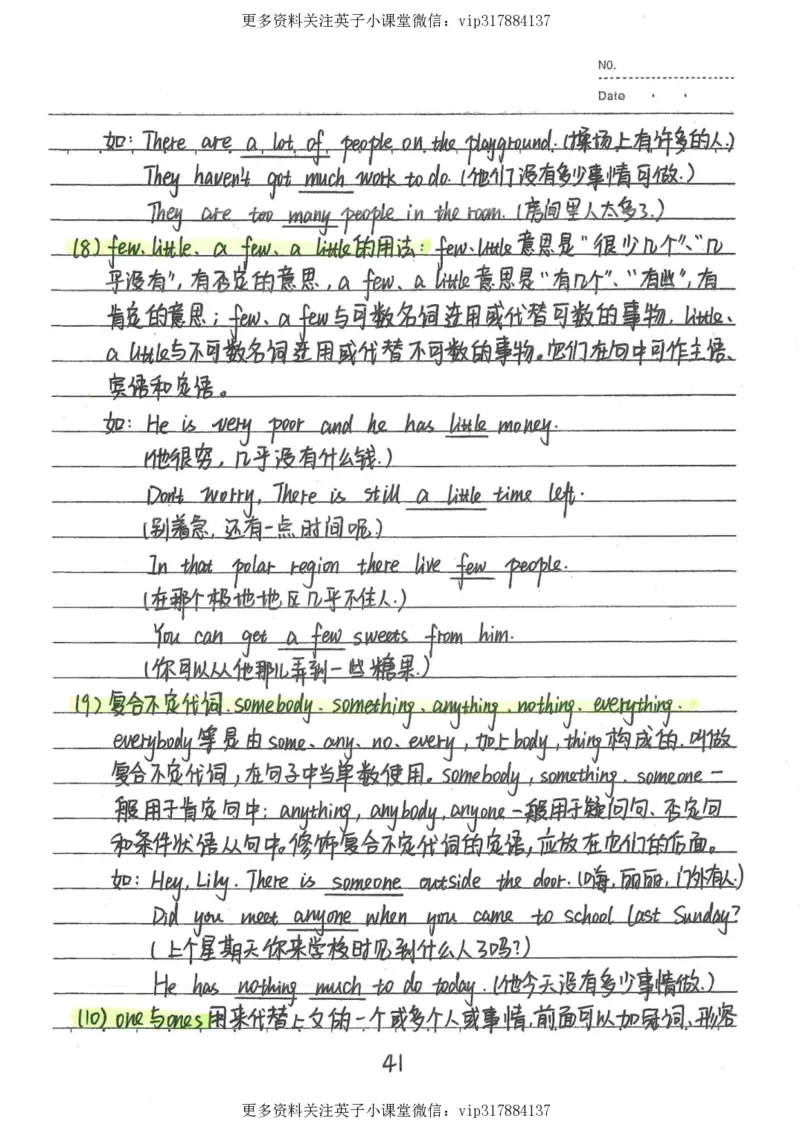 更多资料关注英子小课堂微信：vip317884137
NO.
Date
如：There are a lot of people on the playground.（操场上有许多的人.）
They haven't got much work to do.（他们没有多少事情可做.）
They are too many people in the room.（房间里人太多了.）
(8) few、little、a few、a little的用法：few、little意思是“很少几个”、“几
乎没有”，有否定的意思，a few、a little意思是“有几个”、“有些”，有
肯定的意思；few、a few与可数名词连用或代替可数的事物，little、
a little与不可数名词连用或代替不可数的事物。它们在句中可作主语、
宾语和定语。
如：He is very poor and he has little money.
（他很穷，几乎没有什么钱.）
Don't worry, There is still a little time left.
（别着急，还有一点时间呢.）
In that polar region there live few people.
（在那个极地地区几乎不住人.）
You can get a few sweets from him.
（你可以从他那儿弄到一些糖果.）
(9) 复合不定代词.somebody、something、anything、nothing、everything、
everybody等是由some、any、no、every，加上body，thing构成的，叫做
复合不定代词，在句子中当单数使用。somebody，something，someone一
般用于肯定句中；anything，anybody，anyone一般用于疑问句、否定句
和条件状语从句中。修饰复合不定代词的定语，应放在它们的后面。
如：Hey, Lily. There is someone outside the door.（嗨，丽丽，门外有人.）
Did you meet anyone when you came to school last Sunday?
（上个星期天你来学校时见到什么人了吗？）
He has nothing much to do today.（他今天没有多少事情做.）
(10) one与ones用来代替上文的一个或多个人或事情，前面可以加冠词、形容
41
更多资料关注英子小课堂微信：vip317884137